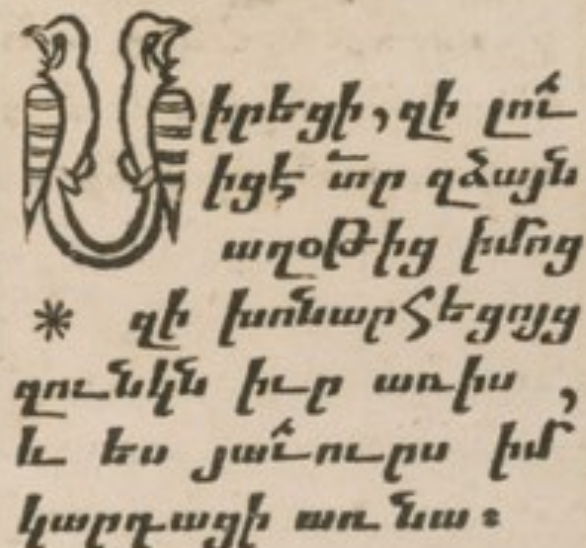 Սիրեցի, զի լուիցէ տր զձայն
աղօթից իմոց
* զի խոնարհեցոյց
զունկն իւր առ իս ,
և ես յաւուրս իմ
կարդացի առ նա։